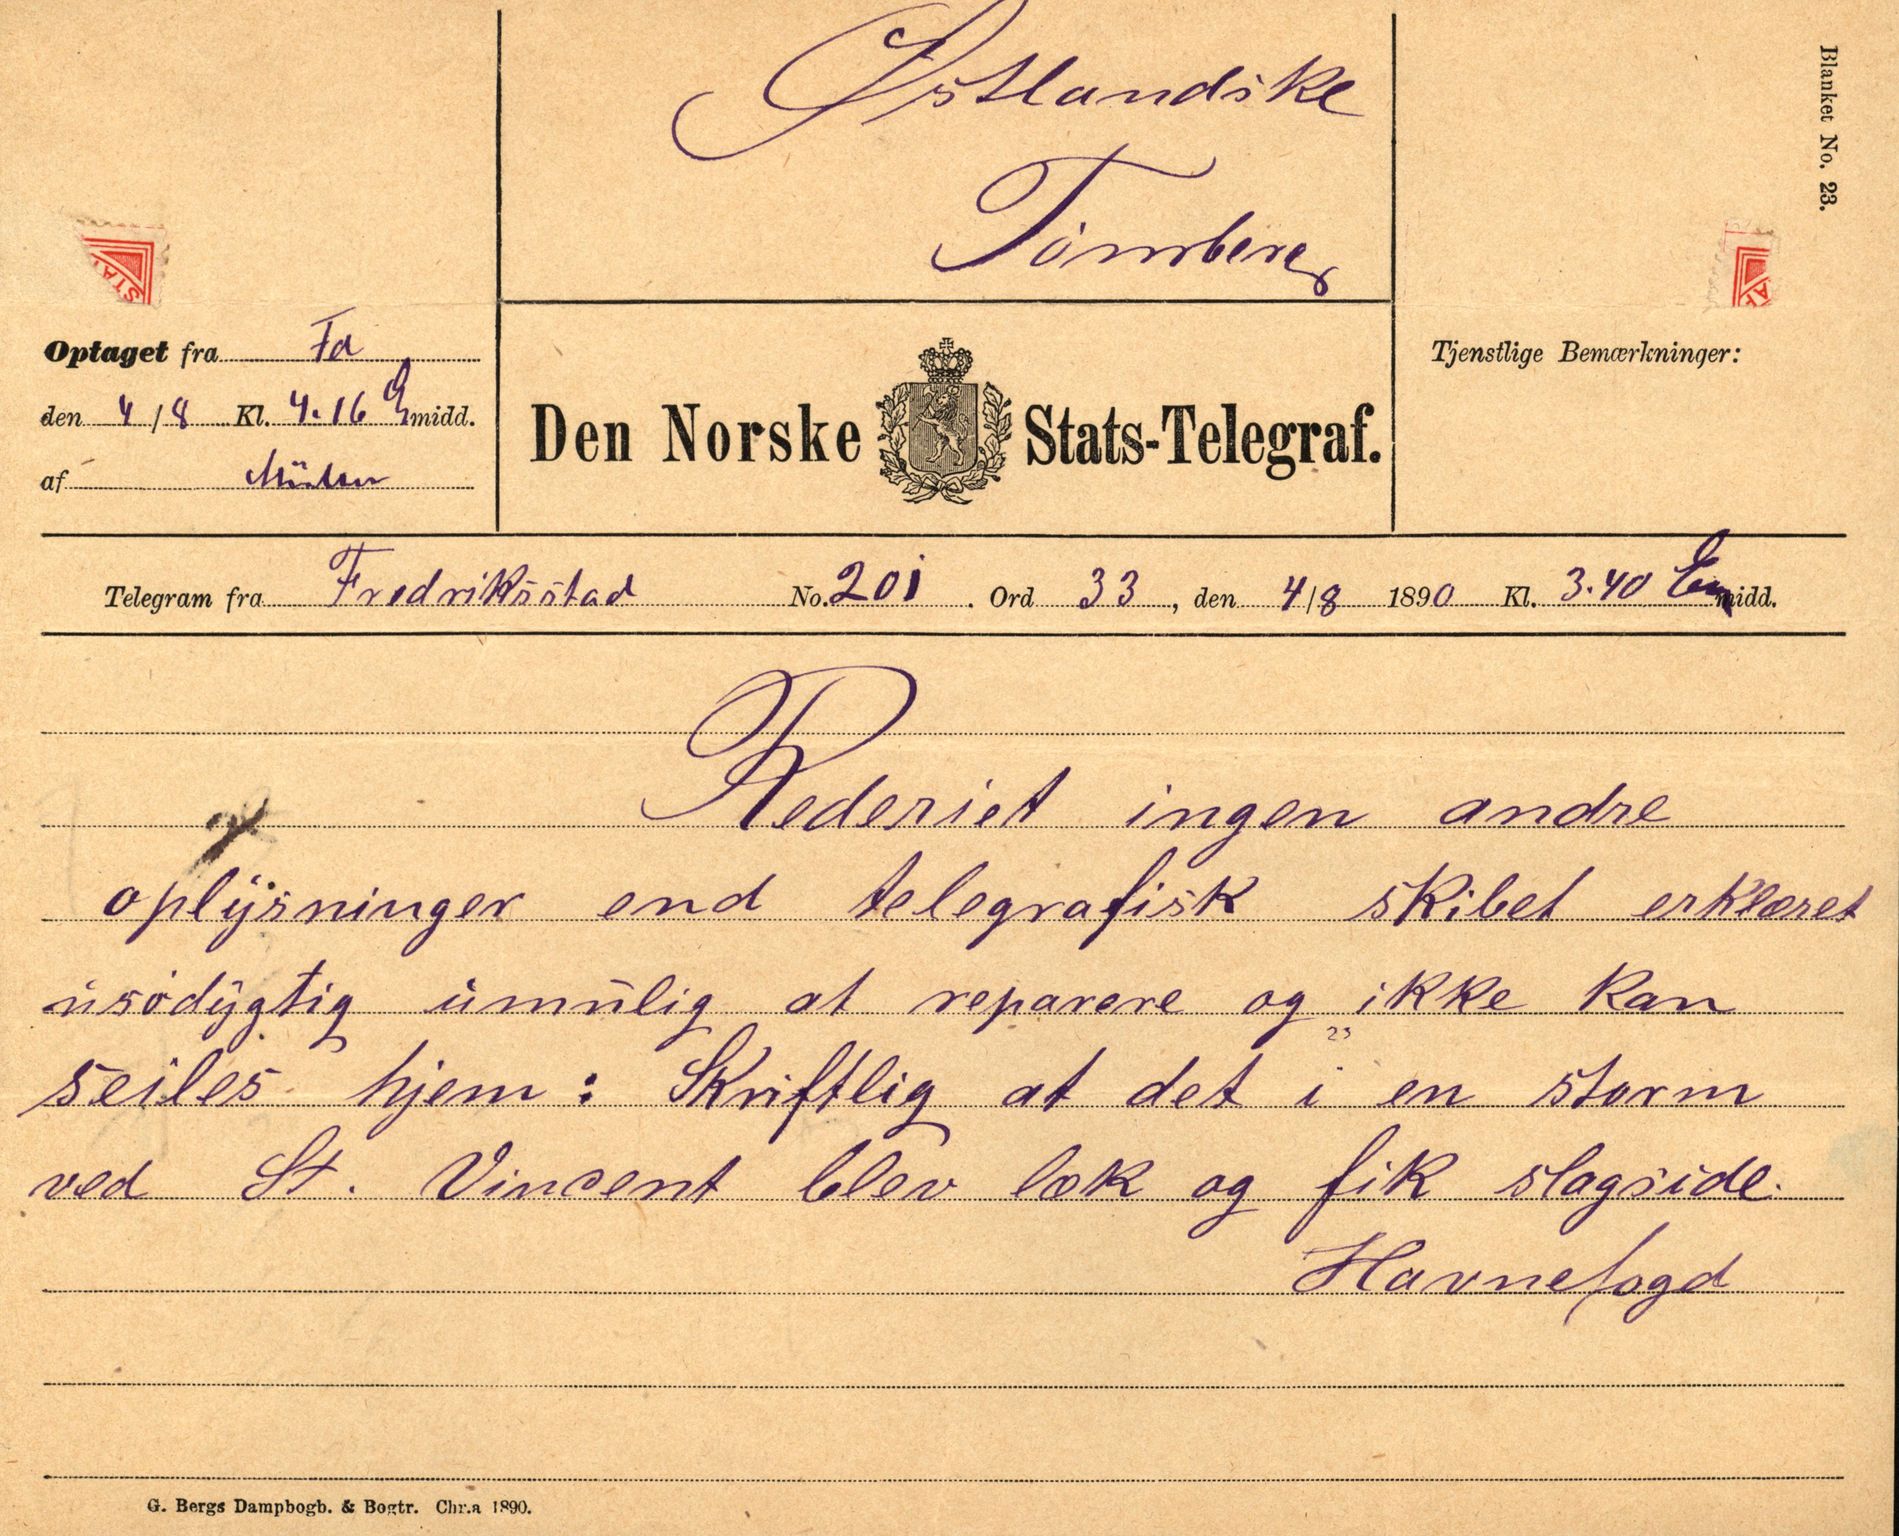 Blanket No. 23.
Østlandske
Tönsberg
Optaget fra Fd
den 4/8 Kl. 4.16 Emidd.
af
Den Norske Stats-Telegraf.
Tjenstlige Bemærkninger:
Telegram fra Fredriksstad No. 201. Ord 33, den 4/8 1890 Kl. 3.40 Emidd.
Rederiet ingen andre
oplÿsninger end telegrafisk skibet erklæret
usödÿgtig umulig at reparere og ikke kan
23
seiles hjem : Skriftlig at det i en storm
ved St. Vincent blev læk og fik slagside.
Havnefogd
G. Bergs Dampbogb. & Bogtr. Chr.a 1890.